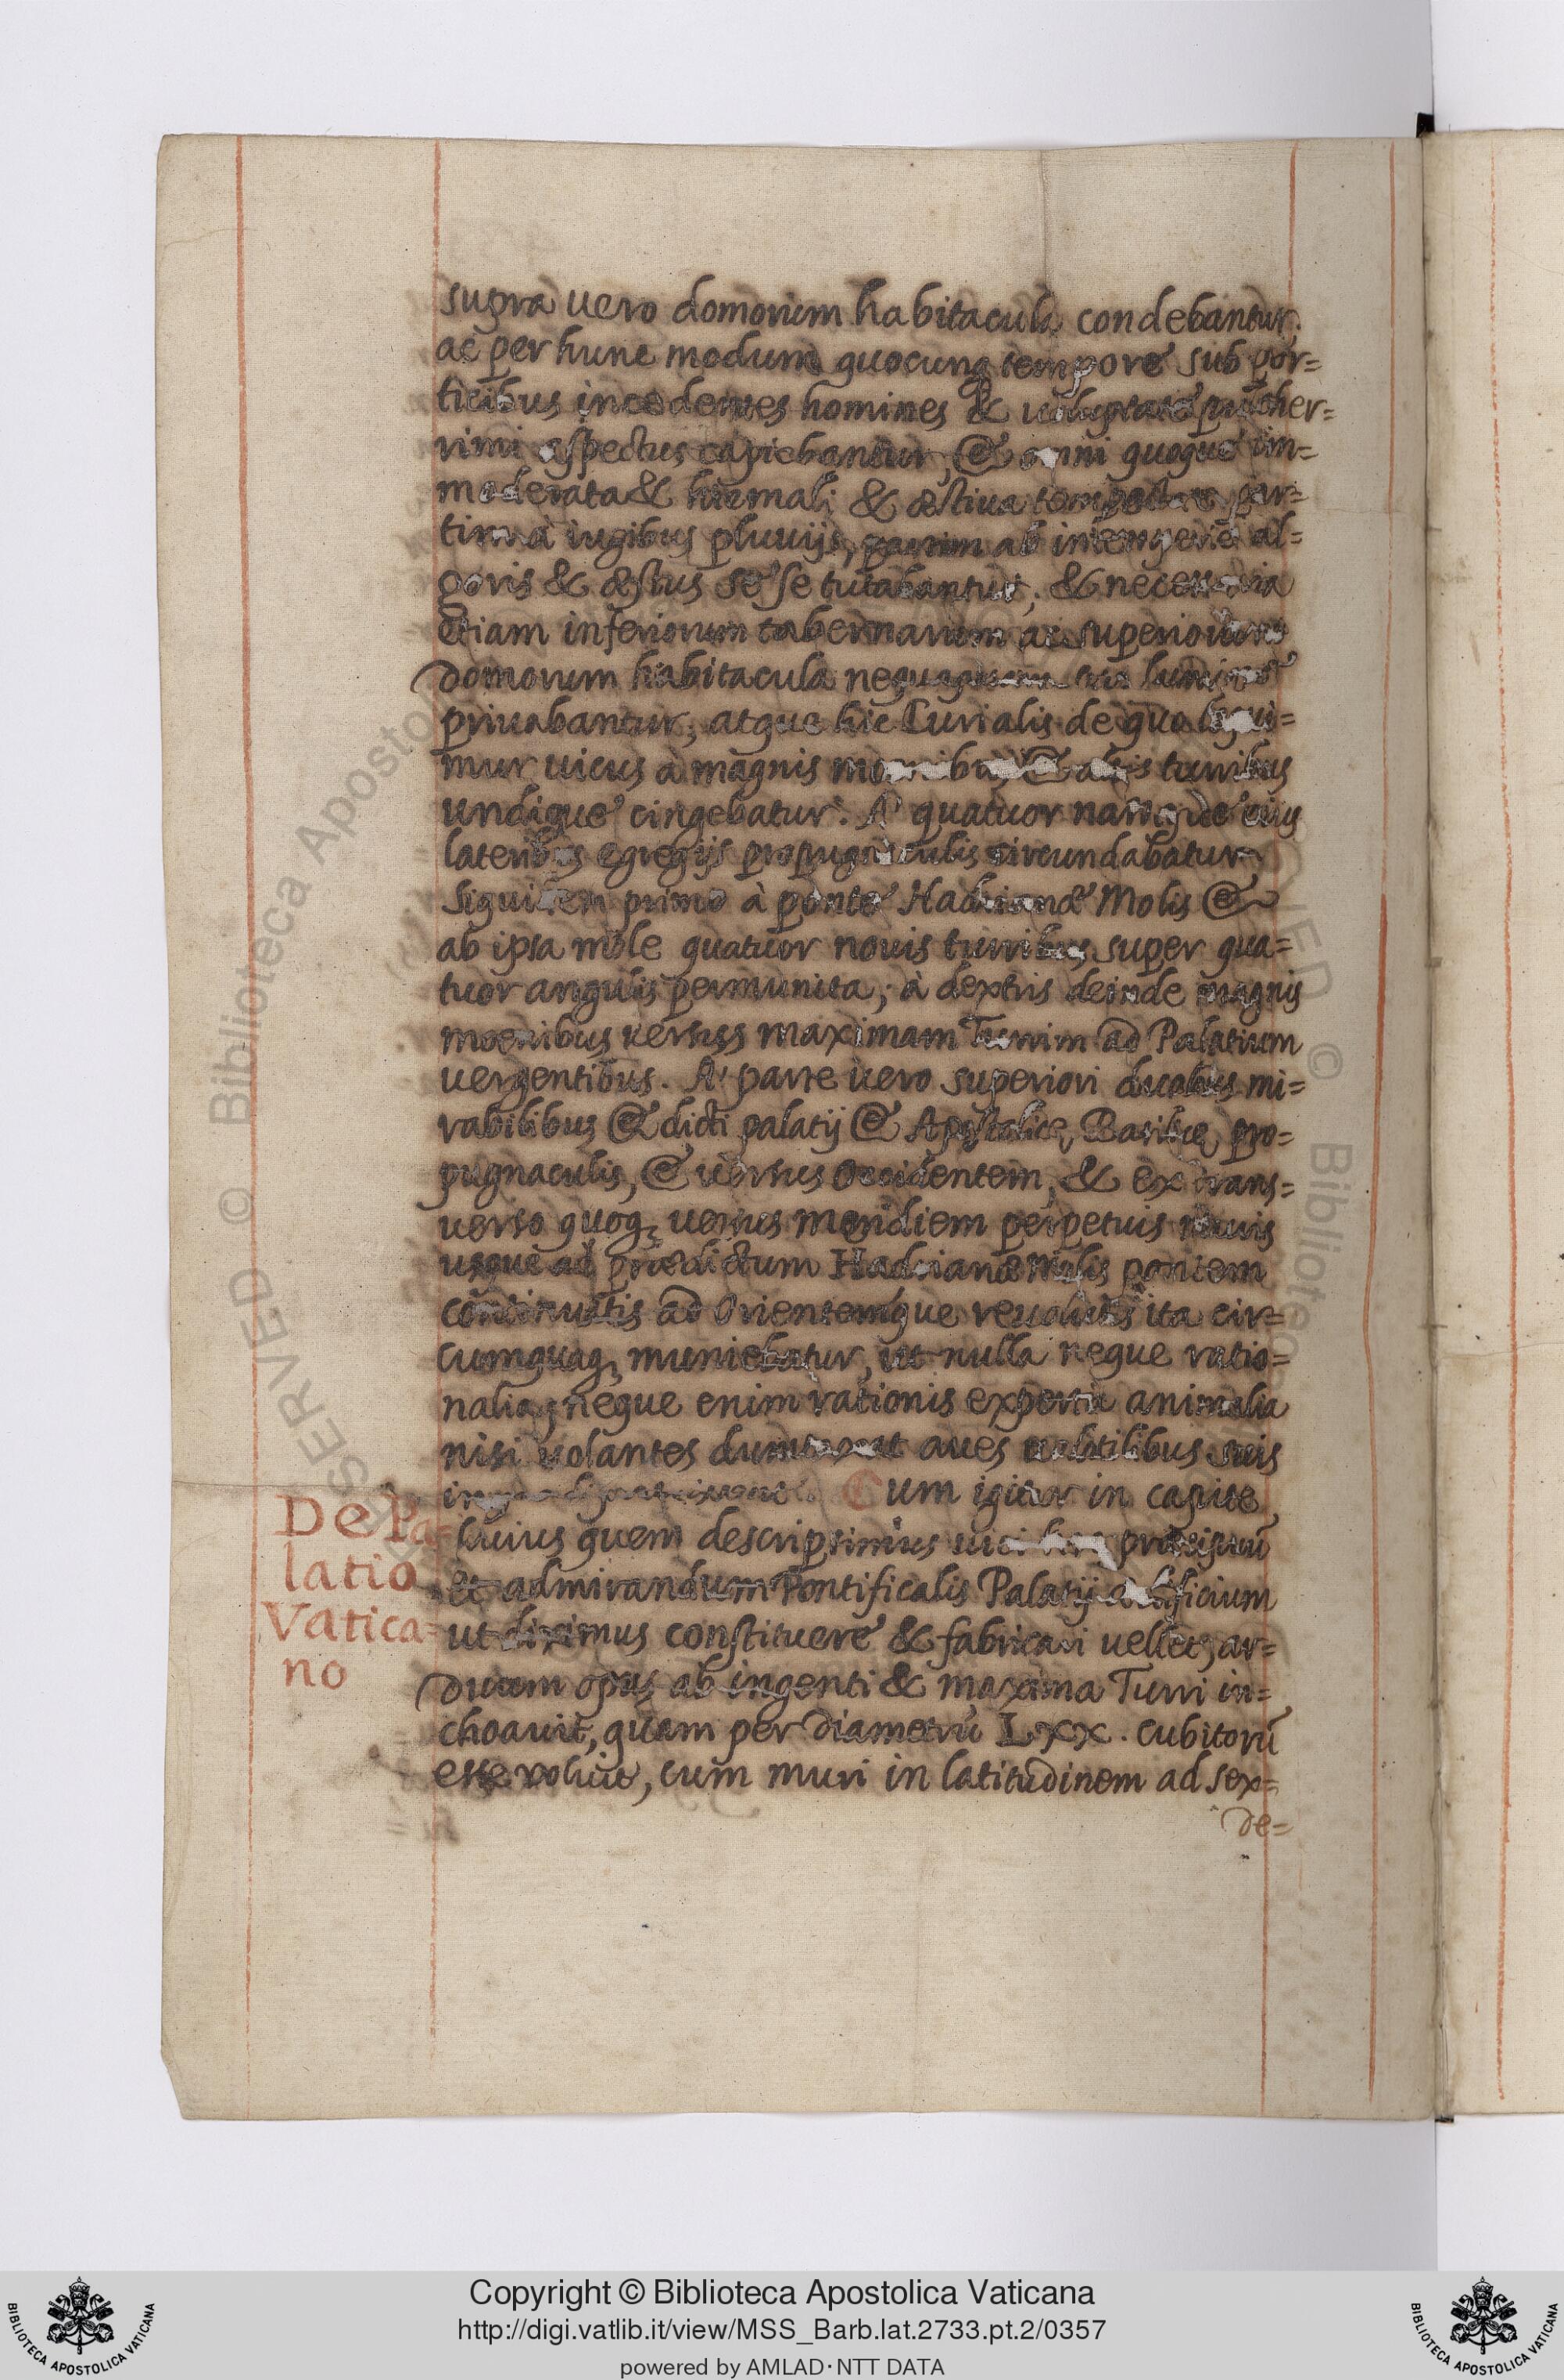 supra uero domorum habitacula condebantur.
ac per hunc modum quocunq tempore sub por=
ticibus incedentes homines & uoluptate pulcher=
rimi aspectus capiebantur, & omni quoque im=
moderata & hiemali & æstiua tempestate par=
tim à iugibus pluuijs, partim ab intemperie al=
goris & æstus sese tutabantur; & necessaria
etiam inferiorum tabernarum ac superiorum
domorum habitacula nequaquam suo lumine
priuabantur; atque hic Curialis de quo loqui=
mur uicus à magnis moenibus & altis turribus
undique cingebatur. A quatuor namque eius
lateribus egregijs propugnaculis circundabatur
siquidem primo à ponte Hadrianæ Molis &
ab ipsa mole quatuor nouis turribus super qua=
tuor angulis permunita; à dextris deinde magnis
moenibus uersus maximam Turrim ad Palatium
uergentibus. A parte uero superiori duobus mi=
rabilibus & dicti palatij & Apostolicę Basilicę pro=
pugnaculis, & uersus Occidentem, & ex trans=
uerso quoq, uersus meridiem perpetuis muris
usque ad prædictum Hadrianæ Molis pontem
continuatis ad Orientemque reuolutis ita cir=
cumquaq, muniebatur, ut nulla neque ratio=
nalia, neque enim rationis expertia animalia
nisi uolantes dumtaxat aues uolatilibus suis
Cum igitur in capite
De Pa=
latio
Vatica=
no
huius quem descripsimus uici hoc præcipuū
et admirandum Pontificalis Palatij ædificium
ut diximus constituere & fabricari uellet, ar=
duum opus ab ingenti & maxima Turri in=
choauit, quam per diametrū LXX. cubitorū
esse voluit, cum muri in latitudinem ad sex=
de=
© Biblioteca Aposto
SERVED © Biblioteca
Copyright © Biblioteca Apostolica Vaticana
http://digi.vatlib.it/view/MSS_Barb.lat.2733.pt.2/0357
powered by AMLAD·NTT DATA
BIBLIOTECA APOSTOLICA VATICANA
BIBLIOTECA APOSTOLICA VATICANA